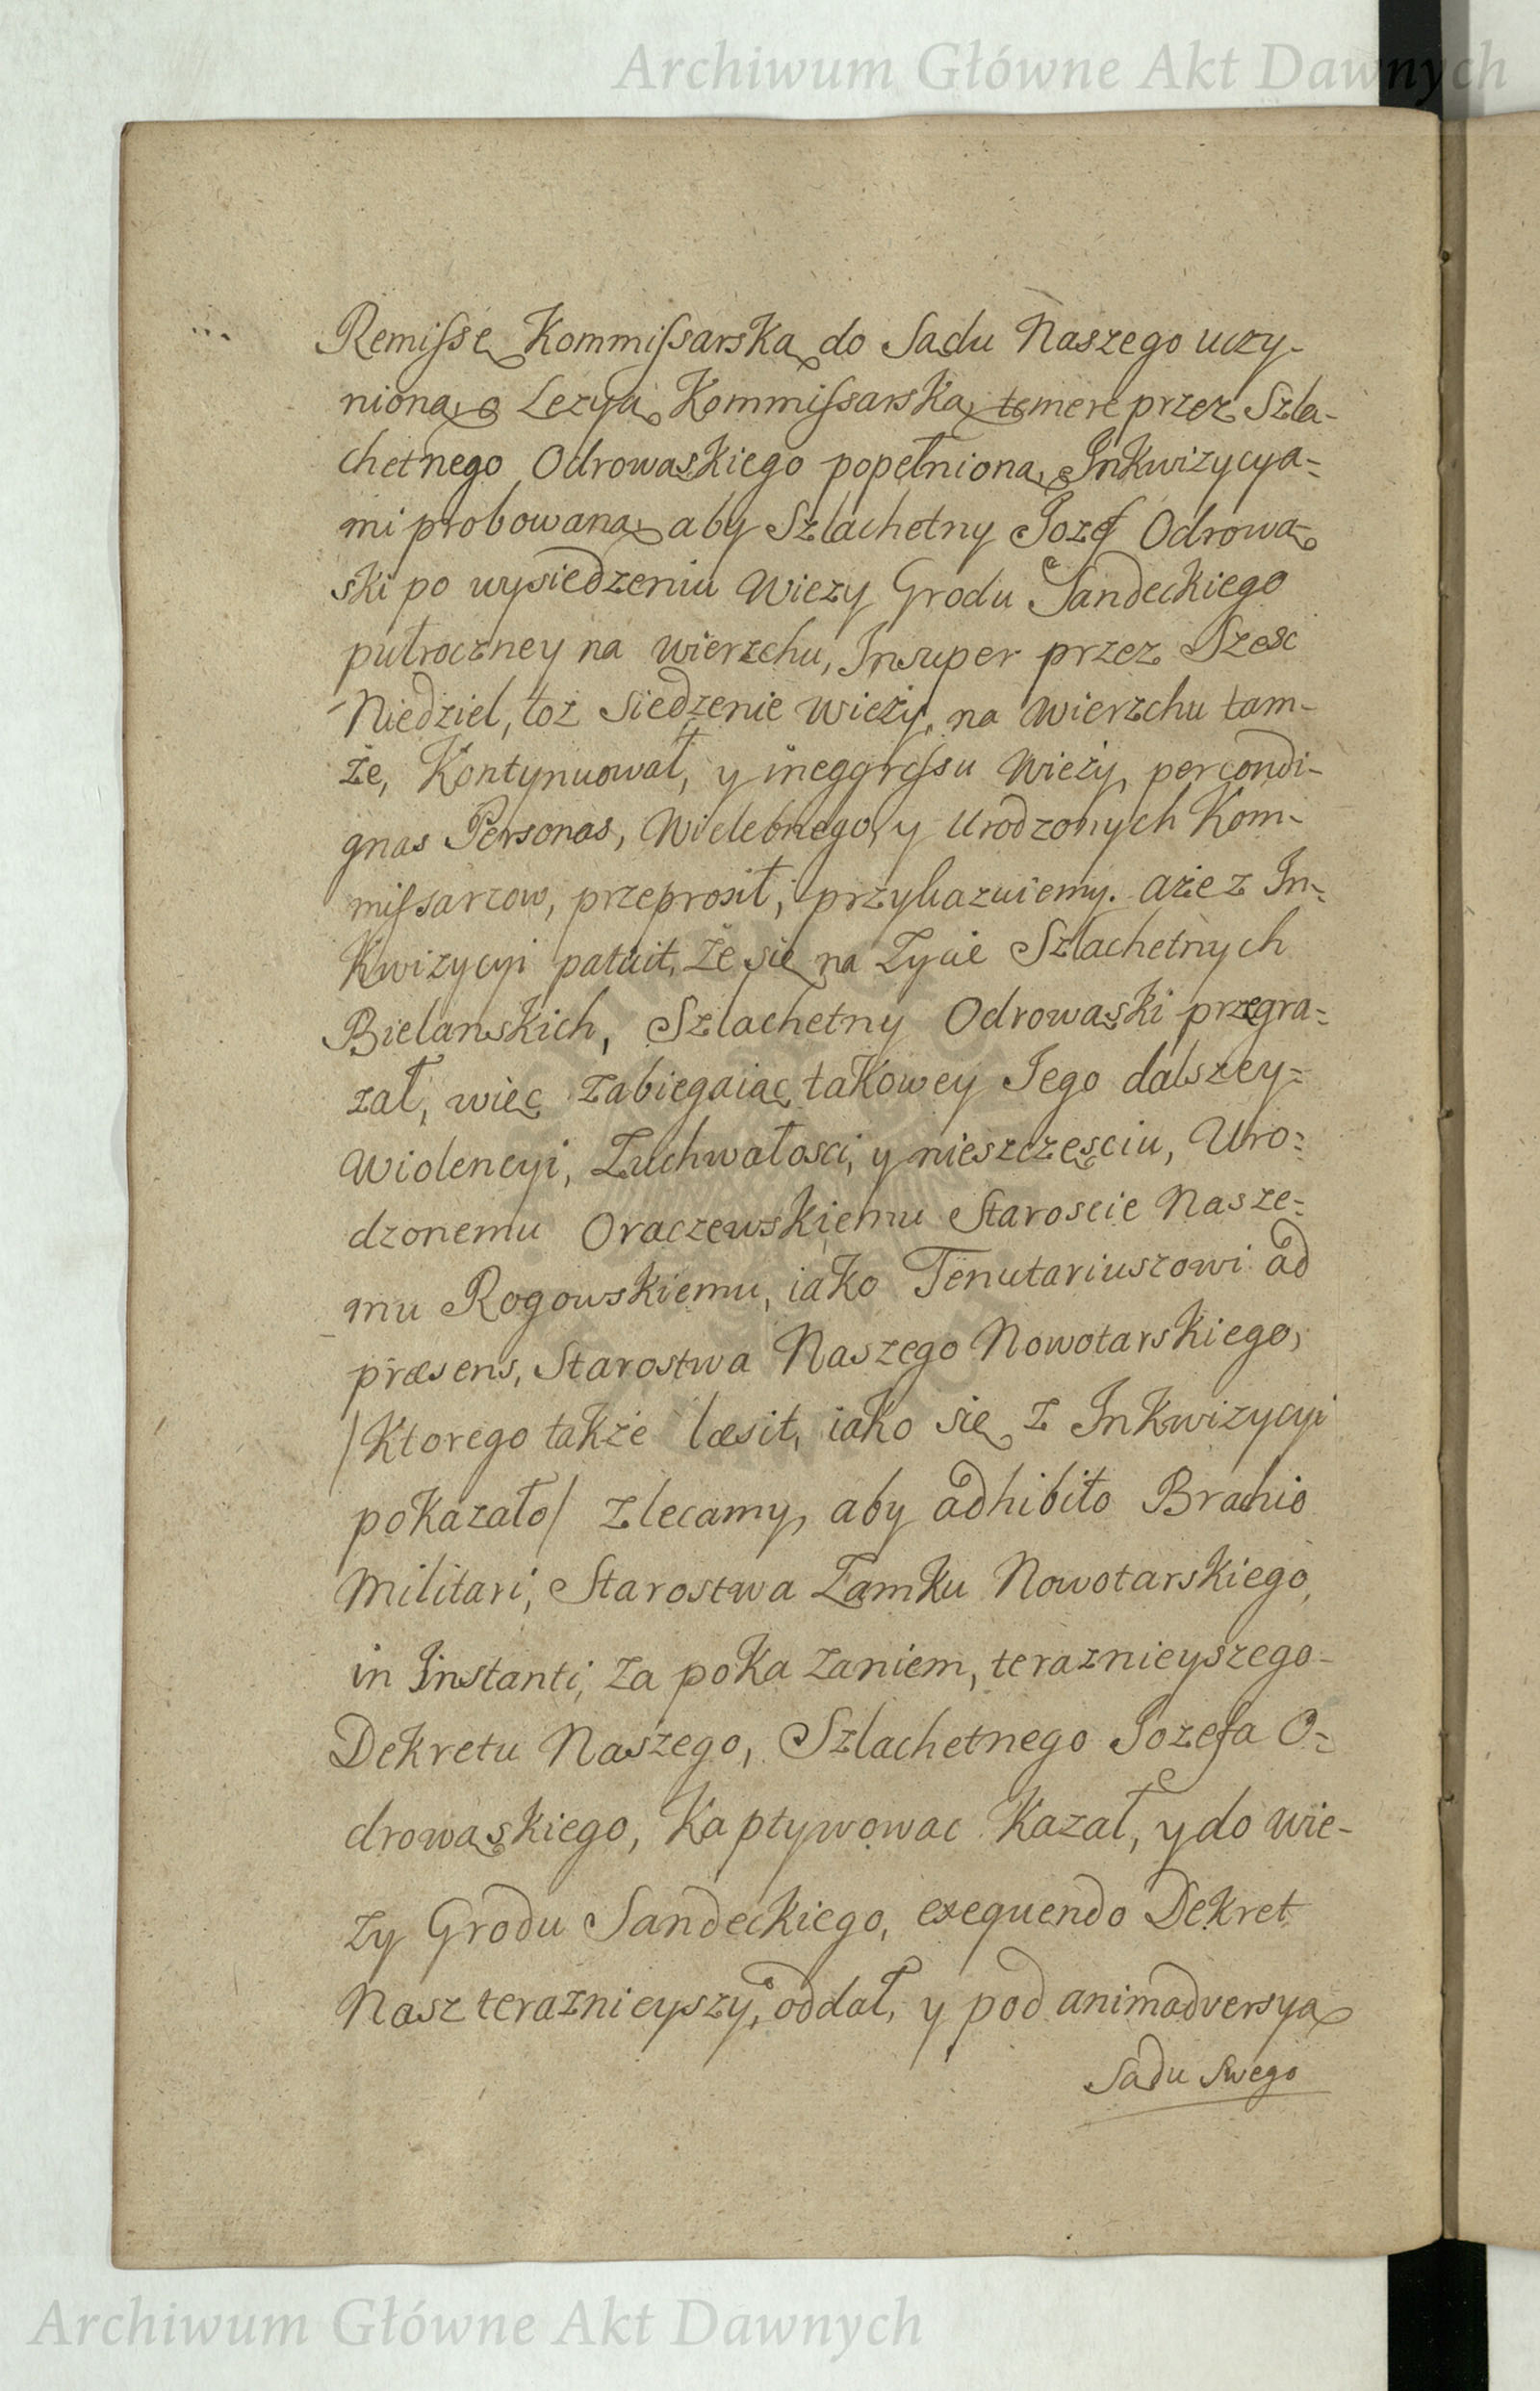 Archiwum Główne Akt Dawnych
Remissę Kommissarską do Sadu Naszego uczy-
nioną o Lezyą Kommissarską temere przez Szla-
chetnego Odrowąskiego popełnioną Inkwizycya=
mi probowaną aby Szlachetny Jozef Odrową-
ski po wysiedzeniu Wiezy Grodu Sandeckiego
pułroczney na wierzchu, Insuper przez Szesc
Niedziel, toż Siedzenie Wieży, na Wierzchu tam-
że, Kontynuował, y in eggressu Wieży, per condi-
gnas Personas, Wielebnego, y Urodzonych Kom-
missarzow, przeprosił, przykazuiemy. aże z In-
Kwizycyi patuit, że się na Zycie Szlachetnych
Bielanskich, Szlachetny Odrowąski przegra=
zał, więc Zabiegaiąc takowey Jego dalszey=
Wiolencyi, Zuchwałosci, y nieszczęsciu, Uro=
dzonemu Oraczewskiemu Staroscie Nasze=
mu Rogowskiemu, iako Tenutariuszowi ad
præsens, Starostwa Naszego Nowotarskiego,
/Ktorego także læsit, iako się z Inkwizycyi
pokazało/ zlecamy, aby adhibito Brachio
Militari, Starostwa Zamku Nowotarskiego,
in Instanti, za pokazaniem, teraznieyszego
Dekretu Naszego, Szlachetnego Jozefa O=
drowąskiego, Kaptywowac Kazał, y do wie-
zy Grodu Sandeckiego, exequendo Dekret
Nasz teraznieyszy, oddał, y pod animadversyą
Sadu Swego
Archiwum Główne Akt Dawnych